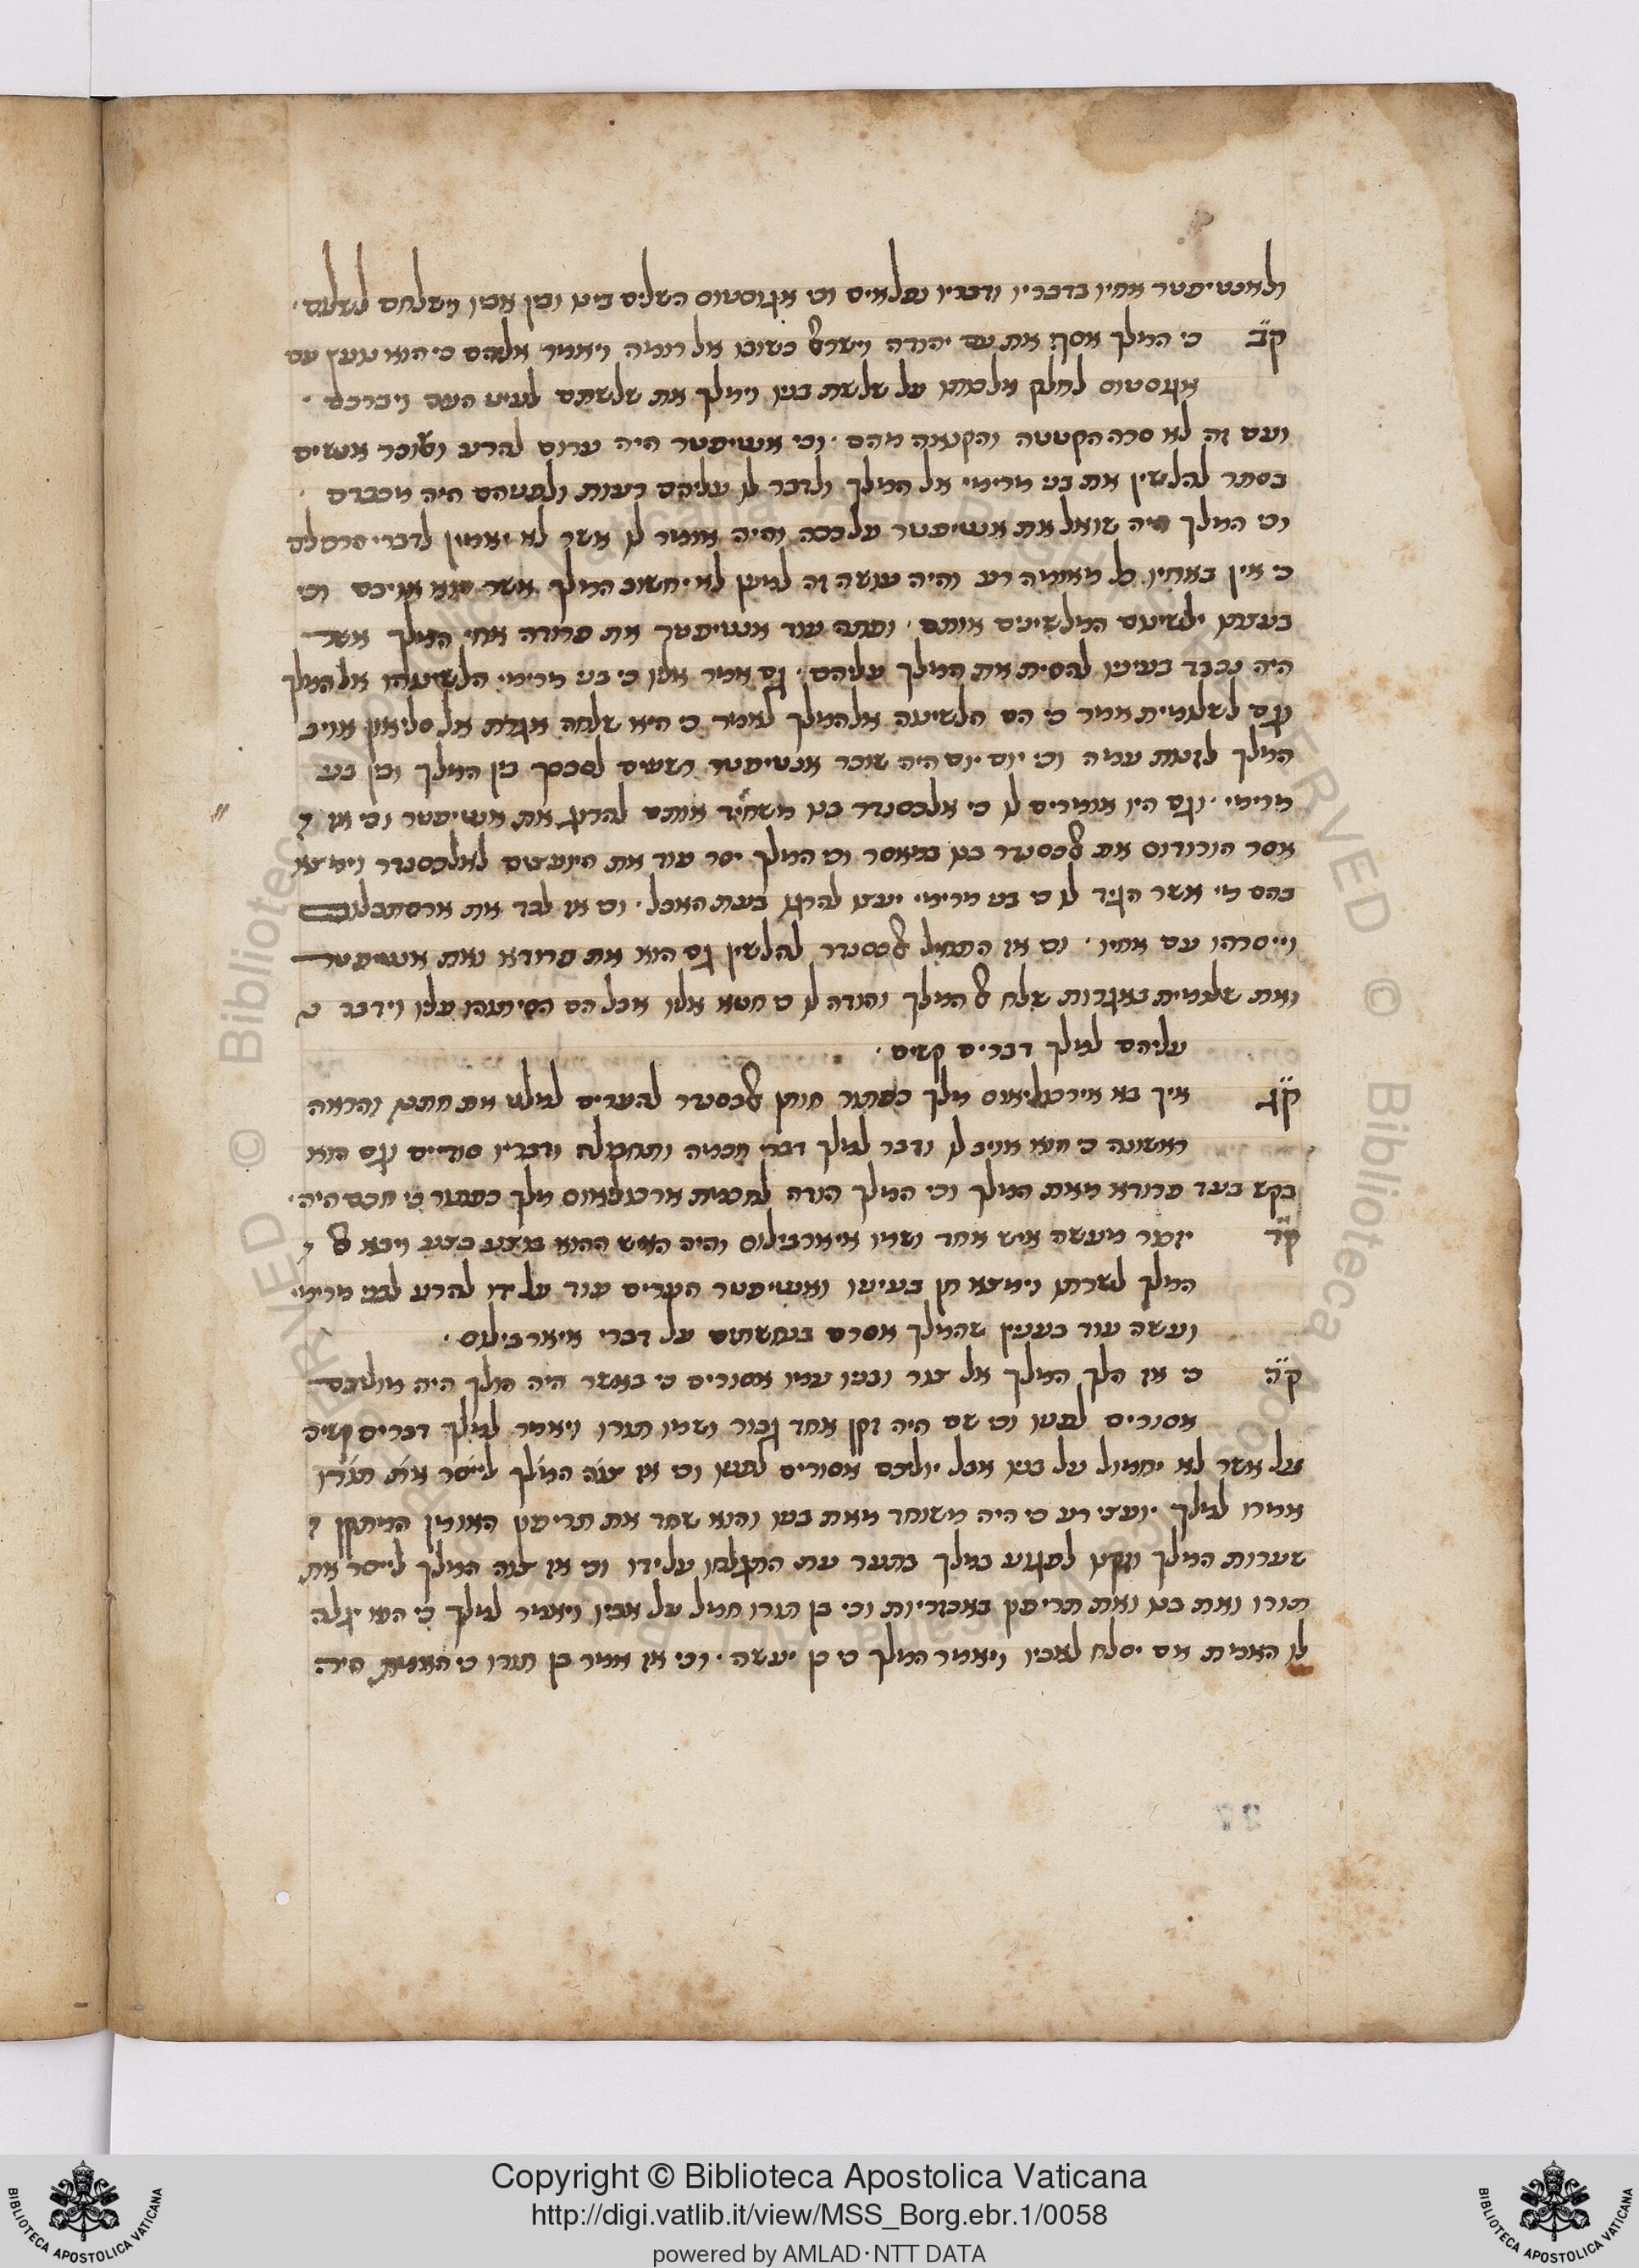 ולאנטיפטר אחיו בדבריו ודבריו נפלאים וכי אגוסטוס השלים בינו ובין אביו וישלחם לשלום.
ק״ב כי המלך אסף את עם יהודה וישראל בשובו אל רומה ויאמר אליהם כי הוא נועץ עם
אגוסטוס לחלק מלכותו על שלשת בניו וימלך את שלשתם לעיני העם ויברכם.
ועם זה לא סרה הקטטה והקנאה מהם. וכי אנטיפטר היה ערום להרע ושוכר אנשים
בסתר להלשין את בני מרימי אל המלך ולדבר לו עליהם רעות ולפניהם היה מכבדם
וכי המלך היה שואל את אנטיפטר על ככה והיה אומר לו אשר לא יאמין לדברי
כי אין באחיו כל מאומה רע והיה עושה זה למען לא יחשוב המלך אשר הוא אויבם וכי
בעצתו ילשינום המלשינים אותם. ופתה עוד אנטיפטר את פרודה אחי המלך אשר
היה נכבד בעיניו להסית את המלך עליהם. גם אמר אליו כי בני מרימי הלשינוהו אל המלך
וגם לשלומית אמר כי הם הלשינוה אל המלך לאמר כי היא שלחה אגרת אל סליאון אויב
המלך לזנות עמה וכי יום יום היה שוכר אנטיפטר רשעים לסכסך בין המלך ובין בני
מרימי. וגם היו אומרים לו כי אלכסנדר בנו משחיד אותם להרוג את אנטיפטר וכי אז
אסר הורודוס את אלכסנדר בנו במאסר וכי המלך יסר עוד את היועצים לאלכסנדר וימצא
בהם מי אשר הגיד לו כי בני מרימי יעצו להרגו בעת האכל. וכי אז לכד את ארסתבלוס
וייסרהו עם אחיו. וכי אז התחיל אלכסנדר להלשין גם הוא את פרודא ואת אנטיפטר
ואת שלומית באגרות שלח אל המלך והודה לו כי חטא אליו אבל הם הסיתוהו עליו וידבר
עליהם למלך דברים קשים.
ק״ג איך בא ארכילאוס מלך כפתור חותן אלכסנדר להערים למלט את חתנו והראה
ראשונה כי הוא אויב לו ודבר למלך דברי חכמה ותחבולה ודבריו סודיים וגם הוא
בקש בעד פרודא מאת המלך וכי המלך הודה לחכמת ארכילאוס מלך כפתור כי חכם היה.
ק״ד יזכור מעשה איש אחד ושמו איארבילוס והיה האיש ההוא בוצע בצע ויבא אל
המלך לשרתו וימצא חן בעיניו ואנטיפטר הערים עוד על ידו להרע לבני מרימי
ועשה עוד בענין שהמלך אסרם בנחשתים על דברי איארבילוס.
ק״ה כי אז הלך המלך אל צור ובניו עמו אסורים כי באשר היה הולך היה מוליכם
אסורים לפניו וכי שם היה זקן אחד גבור ושמו תורו ויאמר למלך דברים קשים
על אשר לא יחמול על בניו אבל יוליכם אסורים לפניו וכי אז צוה המלך לייסר את תורו
אמרו למלך יועצי רע כי היה משוחד מאת בניו והוא שחד את תריפון האומן המתקן
שערות המלך לפגוע במלך בתער עת התגלחו על ידו וכי אז צוה המלך לייסר את
תורו ואת בנו ואת תריפון באכזריות וכי בן תורו חמל על אביו ויאמר למלך כי הוא יגלה
לו האמת אם יסלח לאביו ויאמר המלך כי כן יעשה. וכי אז אמר בן תורו כי האמת היה
Copyright © Biblioteca Apostolica Vaticana
http://digi.vatlib.it/view/MSS_Borg.ebr.1/0058
powered by AMLAD·NTT DATA
BIBLIOTECA APOSTOLICA VATICANA
BIBLIOTECA APOSTOLICA VATICANA